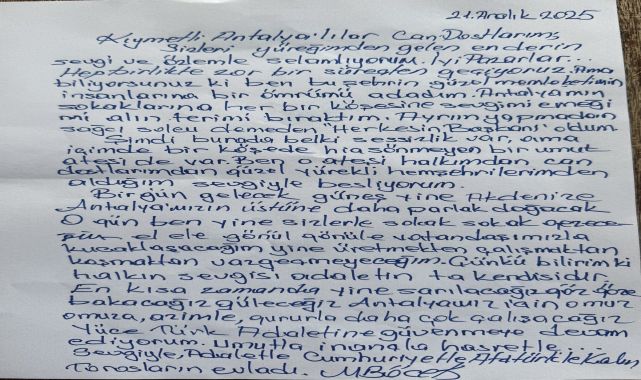 21.Aralık 2025
Kıymetli Antalya'lılar Can Dostlarım,
Sizleri yüreğimden gelen en derin
sevgi ve özlemle selamlıyorum. İyi Pazarlar...
Hep birlikte zor bir süreçten geçiyoruz. Ama
biliyorsunuz ki ben bu şehrin güzel memleketimin
insanlarına bir ömrümü adadım. Antalyamın
sokaklarına her bir köşesine sevgimi emeği
mi alın terimi bıraktım. Ayrım yapmadan
sağcı solcu demeden, "Herkesin Başkanı" oldum
Şimdi burada belki sessizlik var, ama
içimde bir köşede hiç sönmeyen bir umut
ateşi de var. Ben o ateşi halkımdan can
dostlarımdan güzel yürekli hemşehrilerimden
aldığım sevgiyle besliyorum.
Birgün gelecek güneş yine Akdenize
Antalya'mızın üstüne daha parlak doğacak
O gün ben yine sizlerle sokak sokak
el ele gönül gönüle vatandaşımızla
kucaklaşacağım yine üretmekten çalışmaktan
koşmaktan vazgeçmeyeceğim. Çünkü bilirim ki
halkın sevgisi adaletin ta kendisidir.
En kısa zamanda yine sarılacağız göz göze
bakacağız güleceğiz Antalyamız için omuz
omuza, azimle, gururla daha çok çalışacağız
Yüce Türk Adaletine güvenmeye devam
ediyorum. Umutla inançla hasretle...
Sevgiyle, Adaletle Cumhuriyetle Atatürk'le Kalın
Torosların evladı. MBöcek